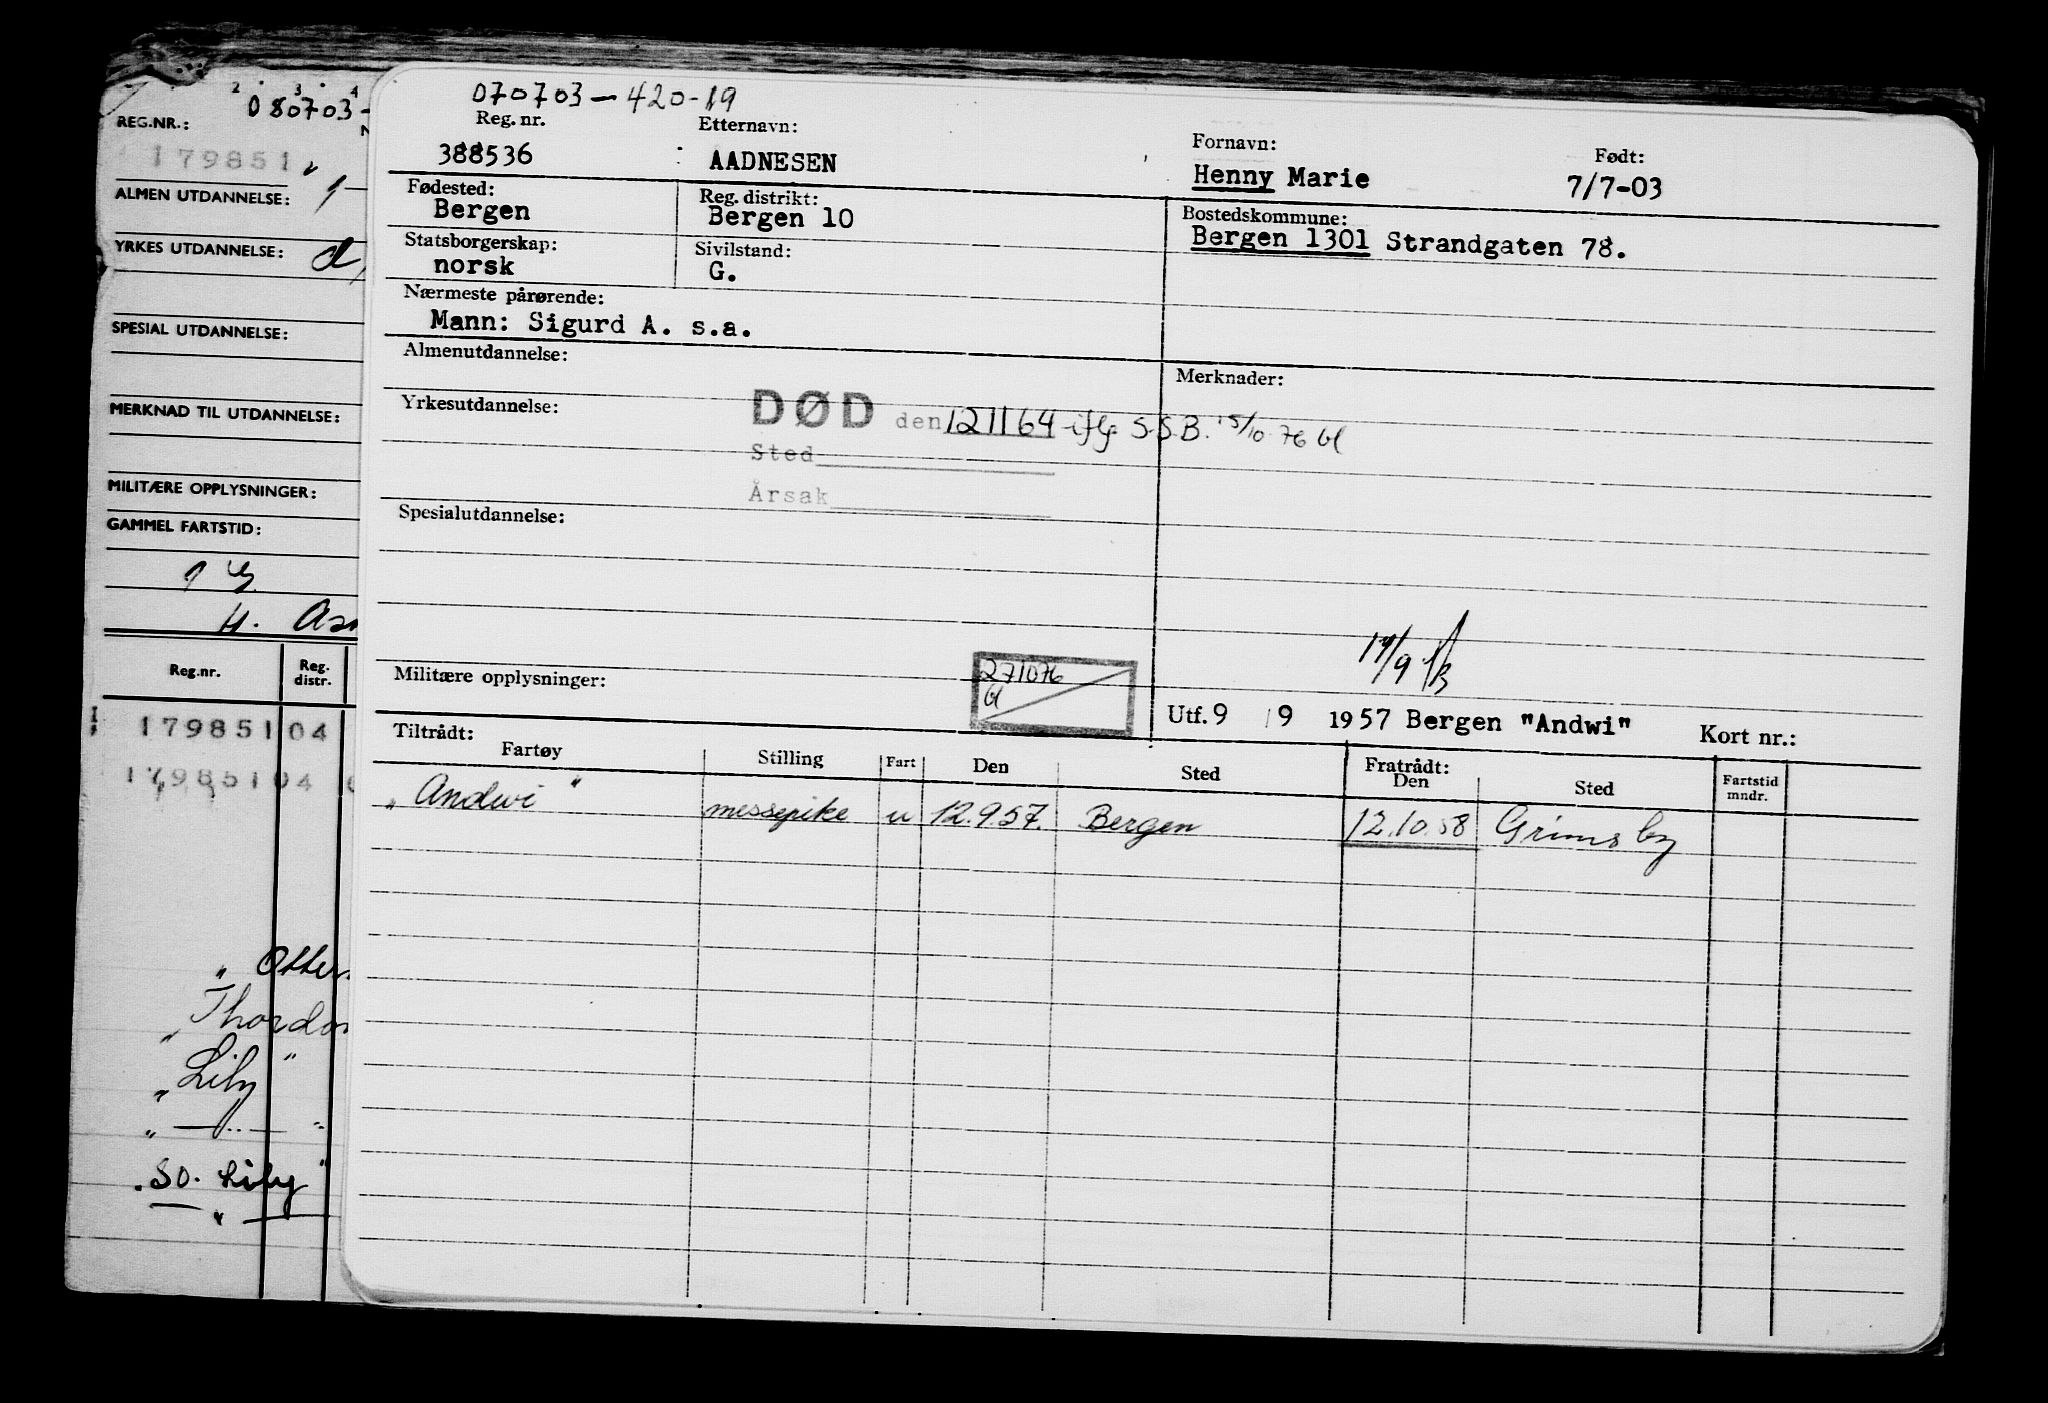 2 3 4
080703-
REG.NR.:
179851
ALMEN UTDANNELSE:
YRKES UTDANNELSE:
SPESIAL UTDANNELSE:
MERKNAD TIL UTDANNELSE:
MILITÆRE OPPLYSNINGER:
GAMMEL FARTSTID:
H.
Reg.nr. Reg. distr.
179851 04
179851 04
" Otter
" Thordor
" Lily "
" — " —
" SO. Lily "
" —
070703-420-19
Reg. nr. Etternavn: Fornavn: Født:
388536 AADNESEN Henny Marie 7/7-03
Fødested: Reg. distrikt: Bostedskommune:
Bergen Bergen 10 Bergen 1301 Strandgaten 78.
Statsborgerskap: Sivilstand:
norsk G.
Nærmeste pårørende:
Mann: Sigurd A. s.a.
Almenutdannelse: Merknader:
Yrkesutdannelse: DØD den 121164 iflg. S.S.B. 15/10 76
Sted
Årsak
Spesialutdannelse:
Militære opplysninger: 271076
Utf. 9 / 9 1957 Bergen "Andwi" Kort nr.:
Tiltrådt: Fratrådt:
Fartøy Stilling Fart Den Sted Den Sted Fartstid mndr.
"Andwi" messepike u 12.9.57. Bergen 12.10.58 Grimsby